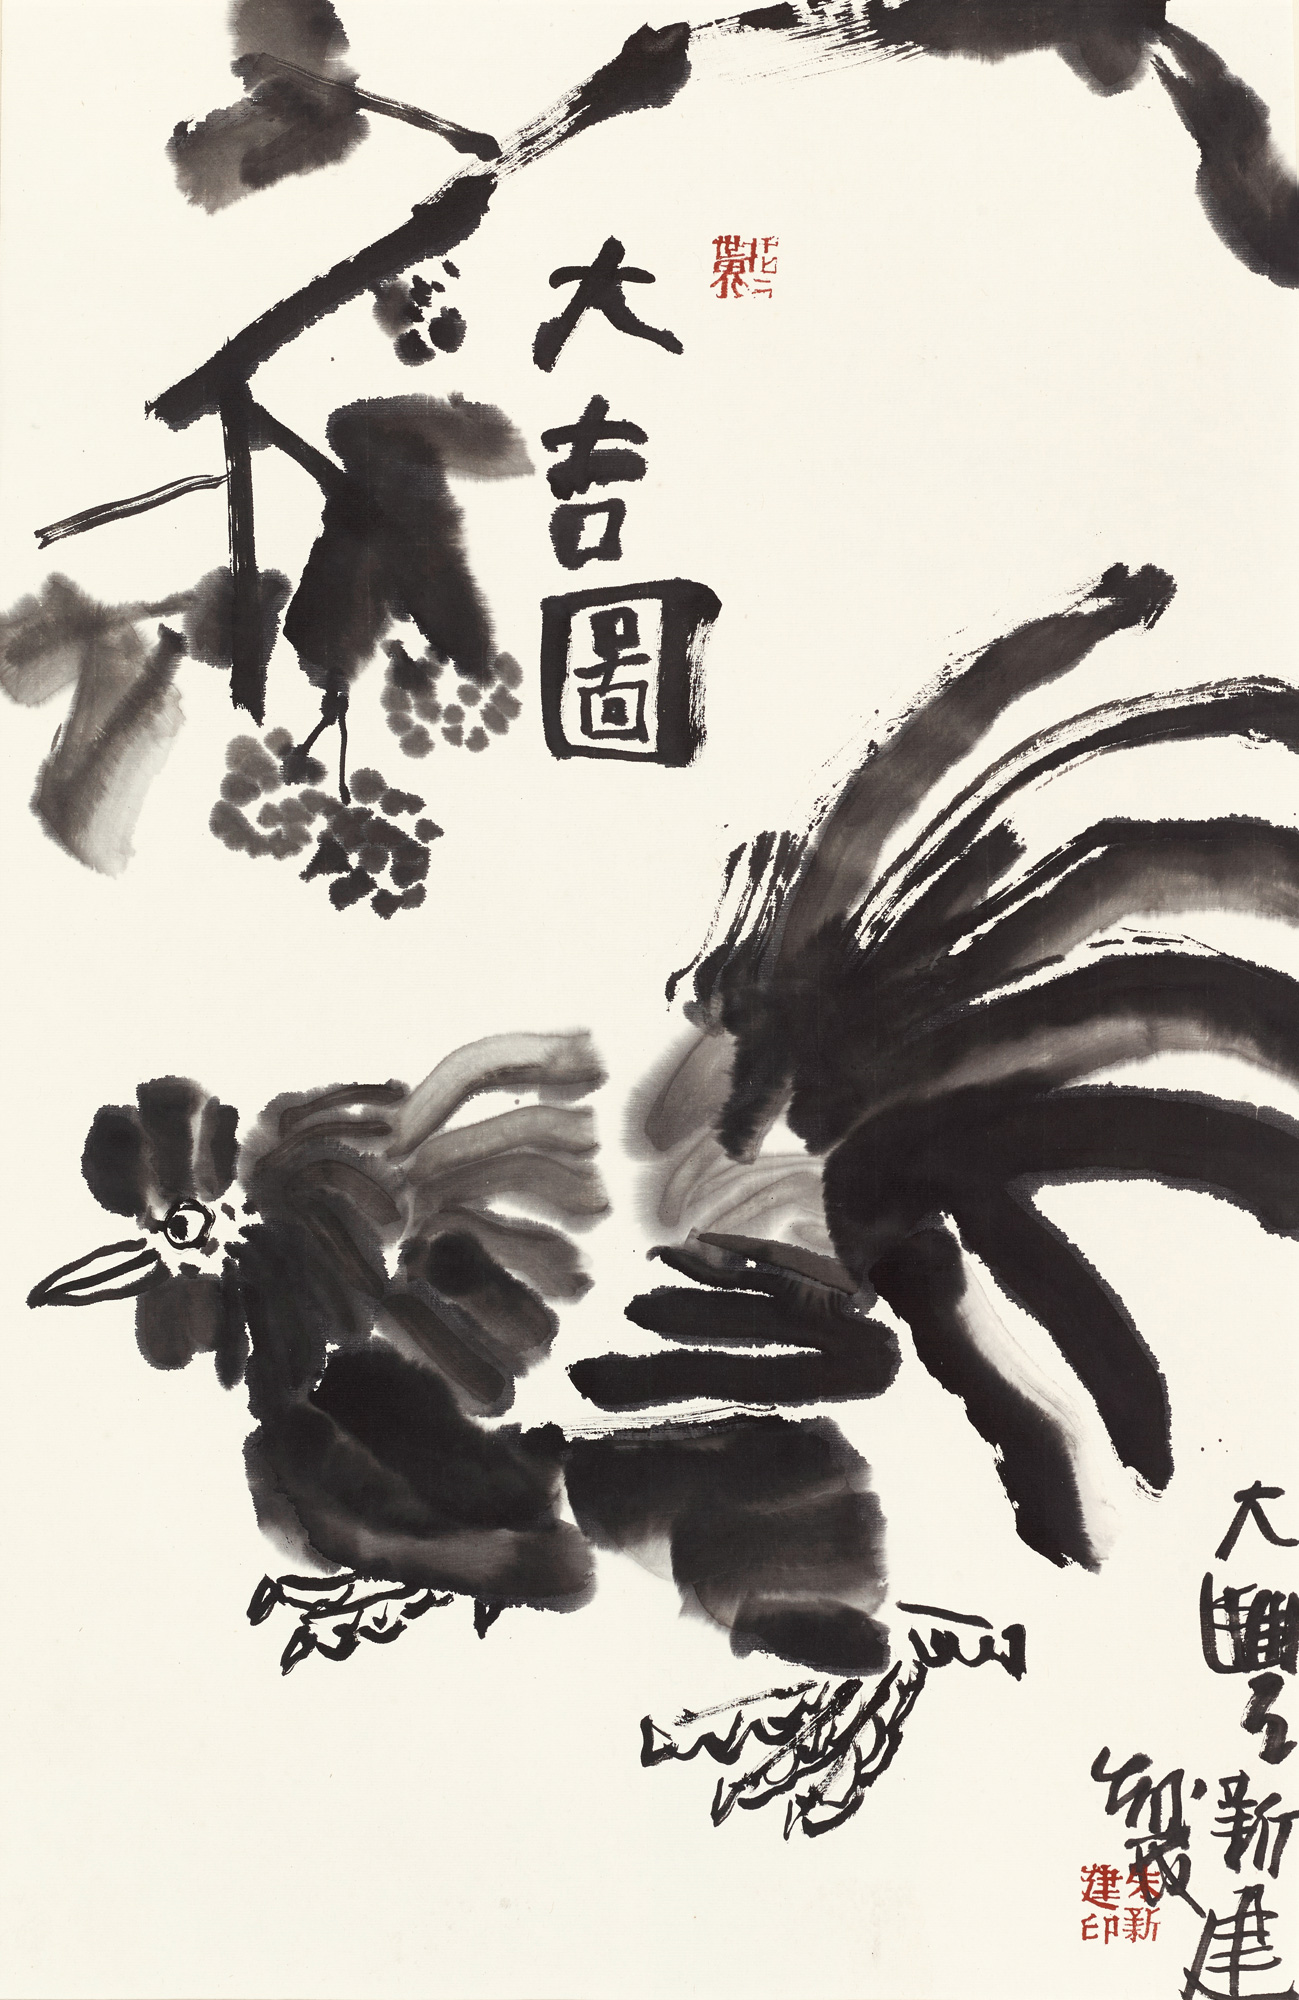 大吉圖
大豐
新建
製
朱新
建印